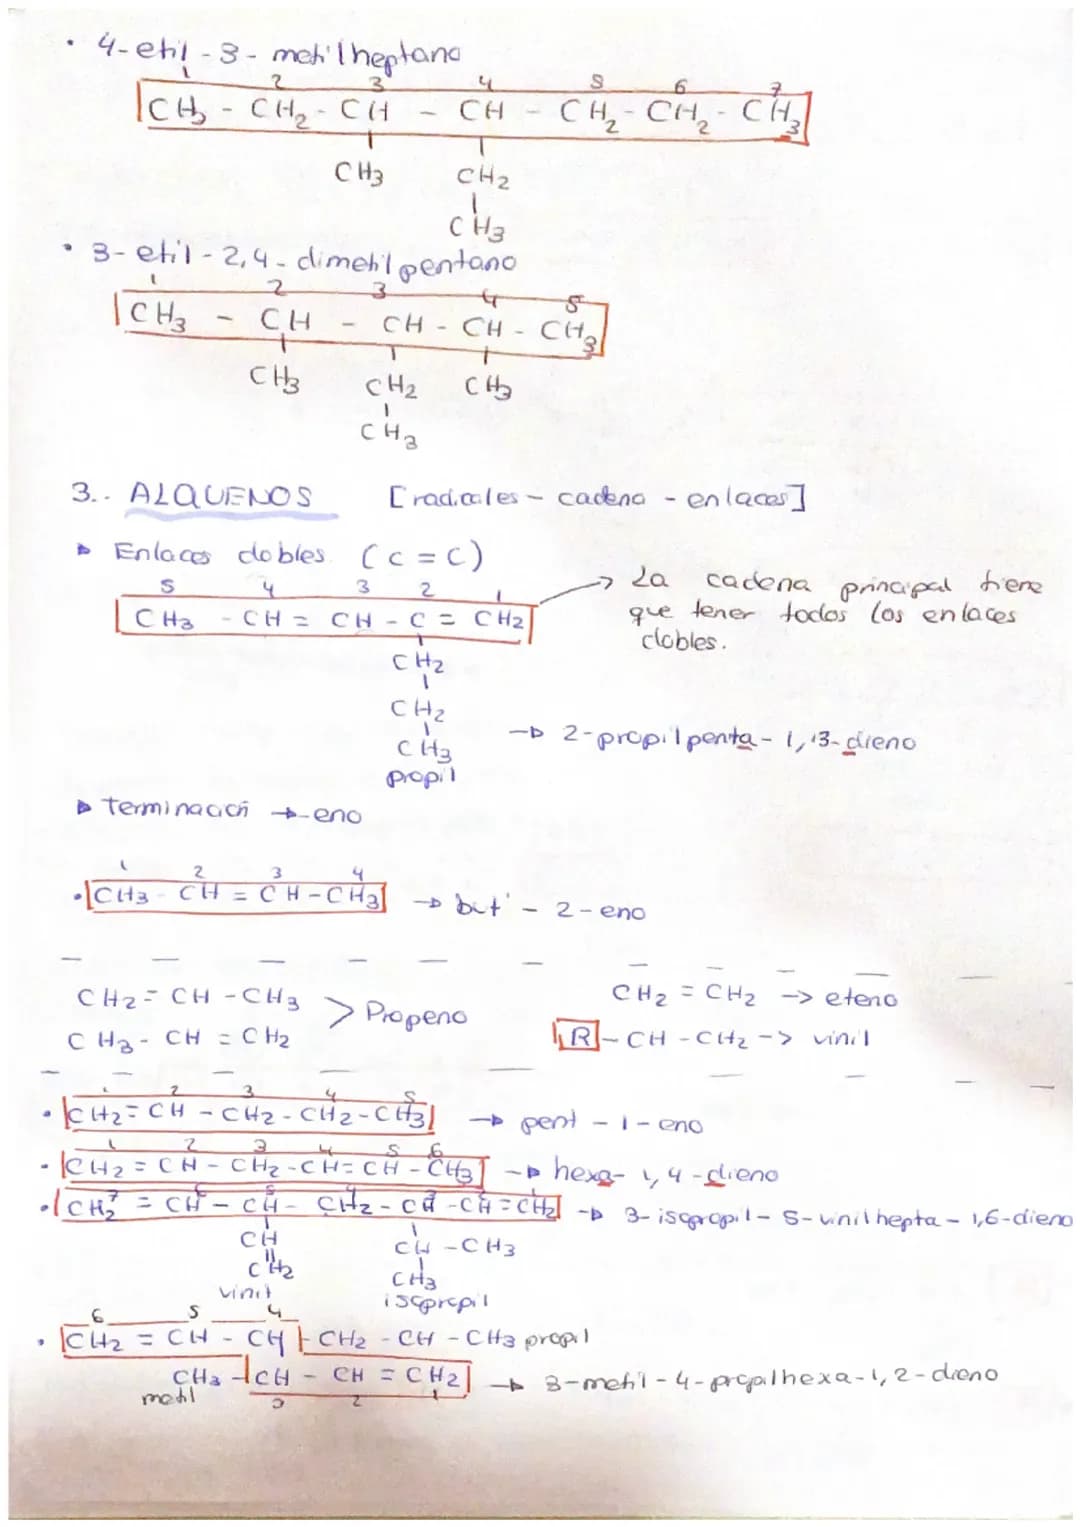 • 4-etil-3-metilheptano
1 2 3 4 5 6 7
CH3 - CH2 - CH - CH - CH2 - CH2 - CH3
CH3 CH2
CH3
• 3-etil-2,4-dimetilpentano
1 2 3 4 5
CH3 - CH - CH - CH - CH3
CH3 CH2 CH3
CH3
3.- ALQUENOS [radicales - cadena - enlaces]
▸ Enlaces dobles (C = C)
5 4 3 2 1
CH3 - CH = CH - C = CH2
→ La cadena principal tiene
que tener todos los enlaces
dobles.
CH2
CH2
CH3
propil
→ 2-propilpenta-1,3-dieno
▸ terminación → -eno
1 2 3 4
• CH3 - CH = CH - CH3 → but - 2-eno
CH2 = CH - CH3
CH3 - CH = CH2
> Propeno
CH2 = CH2 -> eteno
R - CH - CH2 -> vinil
1 2 3 4 5
• CH2 = CH - CH2 - CH2 - CH3 → pent - 1-eno
1 2 3 4 5 6
• CH2 = CH - CH2 - CH = CH - CH3 → hexa- 1,4-dieno
7 6 5 4 3 2 1
• CH2 = CH - CH - CH2 - CH - CH = CH2 → 3-isopropil-5-vinilhepta-1,6-dieno
CH CH - CH3
CH2 CH3
vinil isopropil
6 5 4
• CH2 = CH - CH - CH2 - CH - CH3 propil
CH3 - CH - CH = CH2 → 3-metil-4-propilhexa-1,2-dieno
metil 3 2 1